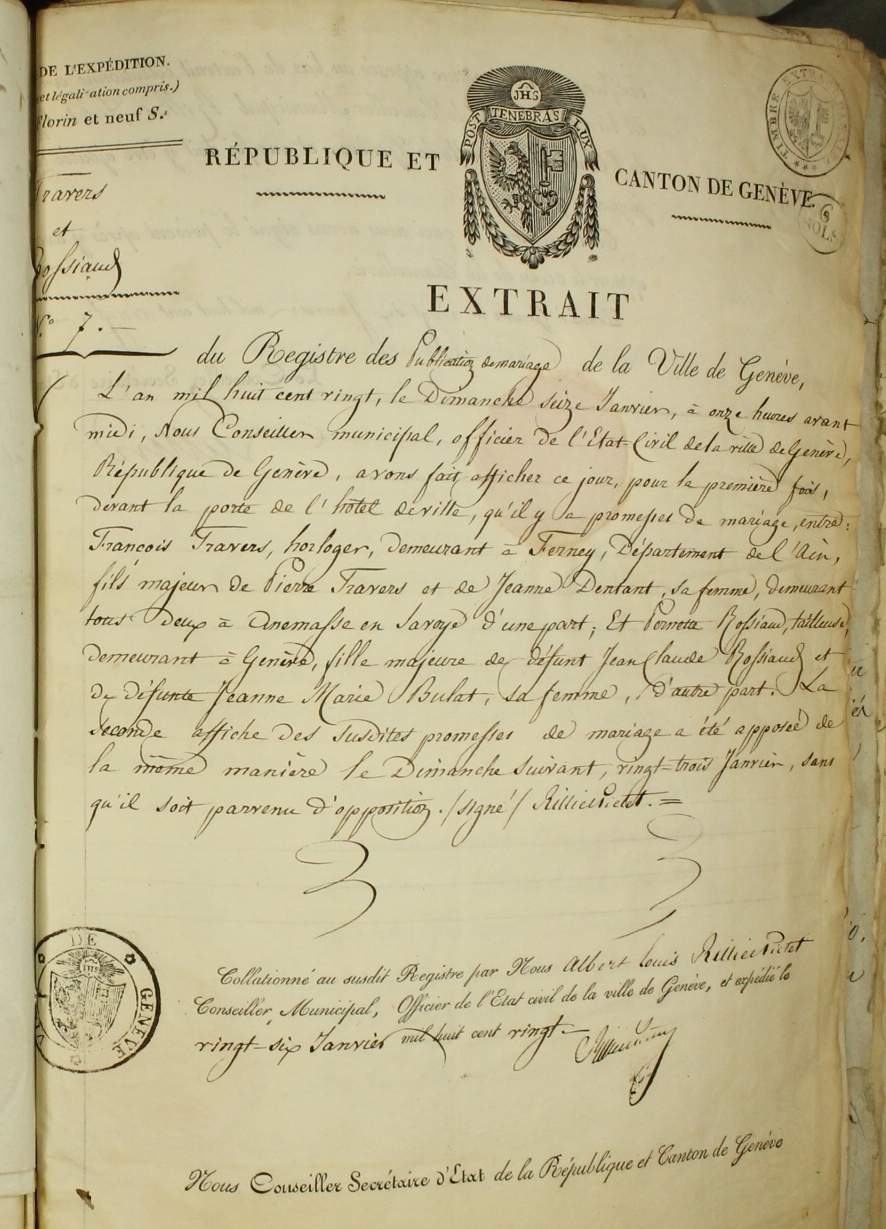 DE L'EXPÉDITION.
et légalisation compris.)
florin et neuf S.s
Travers
et
Rossiaud
N.o 7. —
RÉPUBLIQUE ET
JHS
POST TENEBRAS LUX
CANTON DE GENÈVE.
TIMBRE EXTRA
6
SOLS
EXTRAIT
du Registre des Publication de mariage de la Ville de Genève,
L'an mil huit cent vingt, le Dimanche seize Janvier, à onze heures avant
midi, Nous Conseiller municipal, officier de l'Etat-Civil de la ville de Genève,
République de Genève, avons fait afficher ce jour, pour la première fois,
devant la porte de l'hôtel de ville, qu'il y a promesses de mariage, entre:
François Travers, horloger, demeurant à Ferney, Département de l'Ain,
fils majeur de Pierre Travers et de Jeanne Dentant, sa femme, demeurant
tous deux à Annemasse en Savoye d'une part; Et Pernette Rossiaud, tailleuse,
demeurant à Genève, fille majeure de défunt Jean Claude Rossiaud et
de défunte Jeanne Marie Bulat, sa femme, d'autre part. La
seconde affiche des susdites promesses de mariage a été apposée de
la même manière le Dimanche suivant, vingt-trois Janvier, sans
qu'il soit parvenu d'opposition. /signé/ Rilliet Pictet. =
DE GENÈVE
Collationné au susdit Registre par Nous Albert Louis Rilliet Pictet
Conseiller Municipal, Officier de l'Etat civil de la ville de Genève, et expédié le
vingt-six Janvier mil huit cent vingt —
Nous Conseiller Secrétaire d'Etat de la République et Canton de Genève